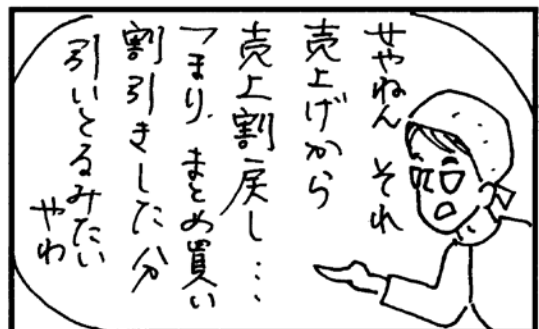 せやねん それ
売上げから
売上割戻し…
つまり、まとめ買い
割引きした分
引いとるみたい
やわ